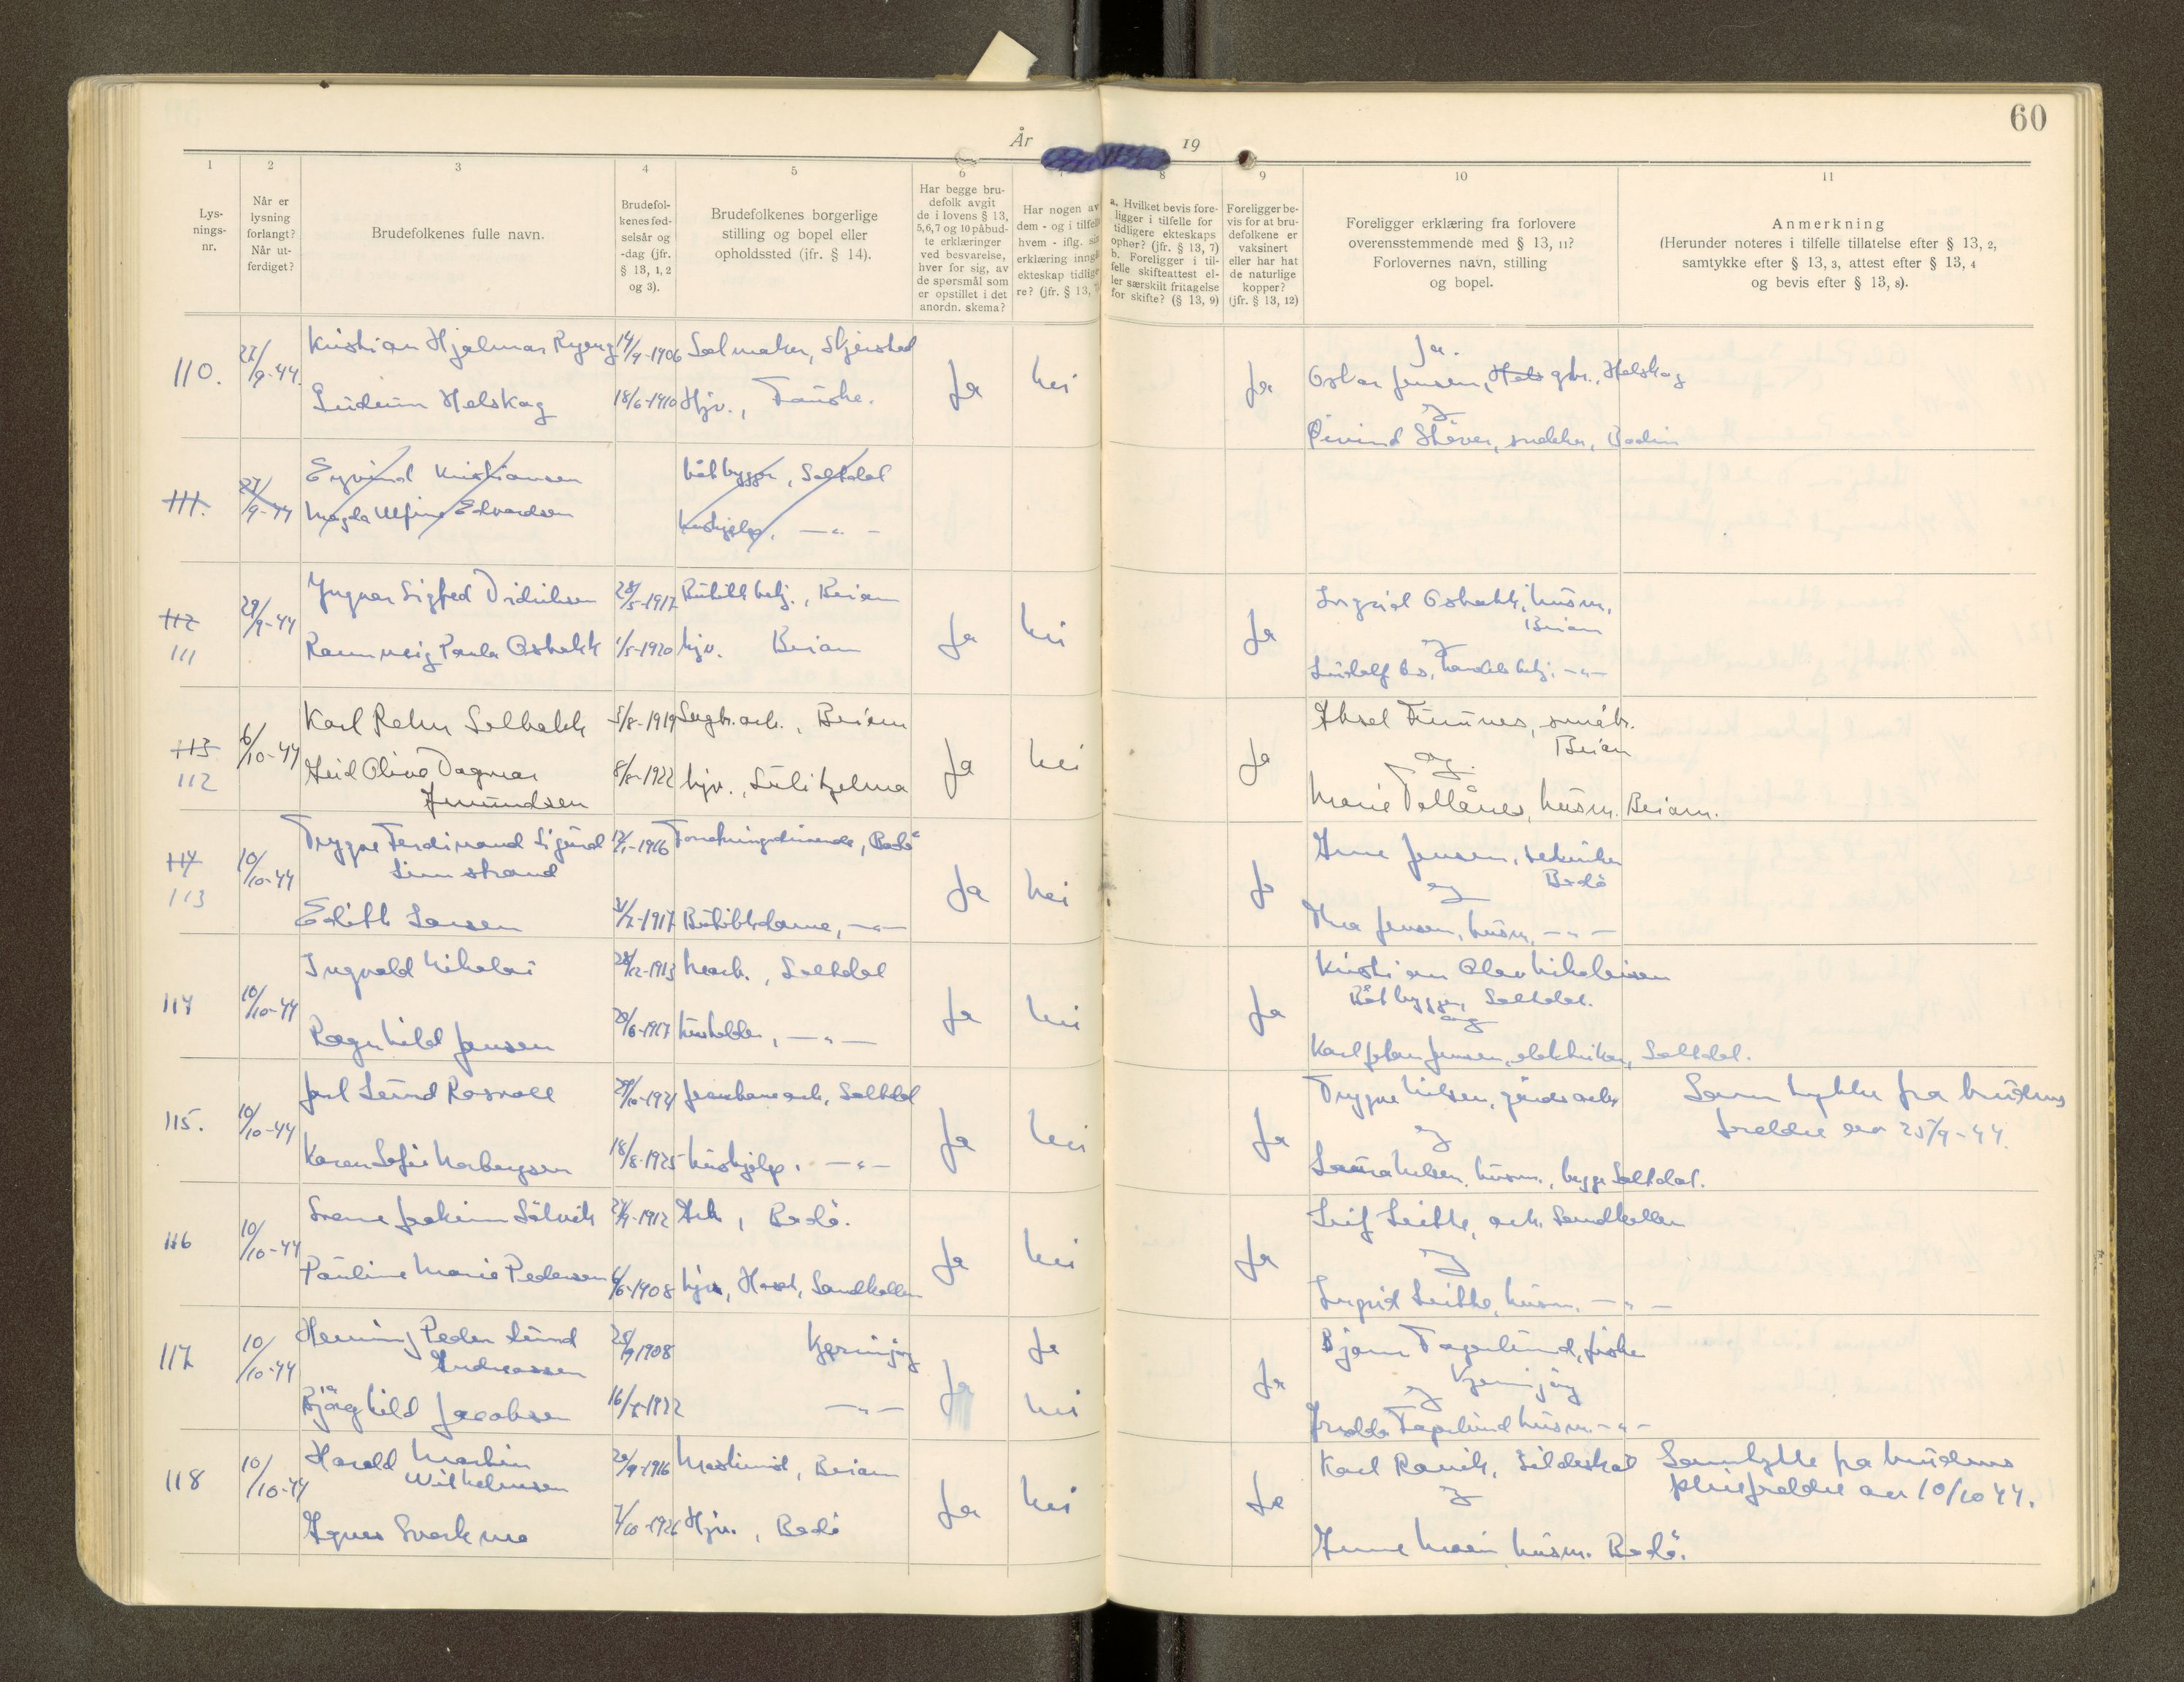 60
År 19
1 2 3 4 5 6 8 9 10 11
Lys-
nings-
nr.
Når er
lysning
forlangt?
Når ut-
ferdiget?
Brudefolkenes fulle navn.
Brudefol-
kenes fød-
selsår og
-dag (jfr.
§ 13, 1, 2
og 3).
Brudefolkenes borgerlige
stilling og bopel eller
opholdssted (jfr. § 14).
Har begge bru-
defolk avgit
de i lovens § 13,
5,6,7 og 10 påbud-
te erklæringer
ved besvarelse,
hver for sig, av
de spørsmål som
er opstillet i det
anordn. skema?
Har nogen av
dem - og i tilfelle
hvem - iflg. sin
erklæring inngå
ekteskap tidlige-
re? (jfr. § 13, 7
a. Hvilket bevis fore-
ligger i tilfelle for
tidligere ekteskaps
ophør? (jfr. § 13, 7)
b. Foreligger i til-
felle skifteattest el-
ler særskilt fritagelse
for skifte? (§ 13, 9)
Foreligger be-
vis for at bru-
defolkene er
vaksinert
eller har hat
de naturlige
kopper?
(jfr. § 13, 12)
Foreligger erklæring fra forlovere
overensstemmende med § 13, 11?
Forlovernes navn, stilling
og bopel.
Anmerkning
(Herunder noteres i tilfelle tillatelse efter § 13, 2,
samtykke efter § 13, 3, attest efter § 13, 4
og bevis efter § 13, 8).
110. 27/9-44. Kristian Hjalmar Ryeng 14/9-1906 Salmaker, Skjerstad Ja Nei Ja Ja.
Oskar Jensen, gbr., Helskog
Helskog 18/6-1910 Hjv., Fauske.
og
Øivind Støver, snekker, Bodin
111. 27/9-44 Eyvind Kristiansen båtbygger, Saltdal
Magda Alfine Edvardsen hushjelp, —"—
112 29/9-44 Yngvar Sigfred Didriksen 28/5-1917 Butikkbetj., Beiarn Ja Nei Ja Ingrid Osbakk, husm.
Beiarn
111 Rannveig Paula Osbakk 1/5-1920 hjv. Beiarn
og
Ludolf Os, handelsbetj. —"—
113 6/10-44 Karl Selbakk 5/8-1919 Beiarn Ja Nei Ja Aksel småbr.
Beiarn
112 Olive Dagmar 8/8-1922 hjv., Sulitjelma
og
Amundsen Marie Tollånes, husm. Beiarn.
114 10/10-44 Trygve Ferdinand Sigurd 12/1-1916 Forsikringsdrivende, Bodø Ja Nei Ja Arne Jensen,
Linnstrand Bodø
113 og
Edith Larsen 1917 Butikkdame, —"— Thea Jensen, husm. —"—
114 10/10-44 Ingvald Nikolai 28/12-1913 Saltdal Ja Nei Ja Kristian Olav Nikolaisen
Båtbygger, Saltdal.
og
Ragnhild Jensen 20/6-1917 husholder, —"— Karl Johan Jensen, elektriker, Saltdal.
115. 10/10-44 Jarl Lund Rosvoll 29/10-1921 jernbanearb., Saltdal Ja Nei Ja Trygve Nilsen, gårdsarb. Samtykke fra brudens
foreldre av 25/9-44.
og
Karen Sofie Norbergsen 18/8-1925 hushjelp, —"— Laura Nilsen, husm., begge Saltdal.
116 10/10-44 Joakim Sølvik 24/9-1912 Arb, Bodø. Ja Nei Ja Leif arb. Sandkollen
og
Pauline Marie Pedersen 6/6-1908 hjv, Hassel, Sandkollen Ingrid husm. —"—
117 10/10-44 Henning Peder Lund 28/9 1908 Kjerringøy Ja Ja Ja Bjarne Fagerlund, fisker
Andreassen Kjerringøy
og
Bjørghild Jacobsen 1922 —"— Nei Fagerlund husm. —"—
118 10/10-44 Harald Martin 20/9-1916 Maskinist, Beiarn Ja Nei Ja Karl Ravik, Gildeskål Samtykke fra brudens
Wilhelmsen pleieforeldre av 10/10 44.
og
Agnes Svartmo 7/10-1926 Hjv., Bodø Anne Moen husm. Bodø.